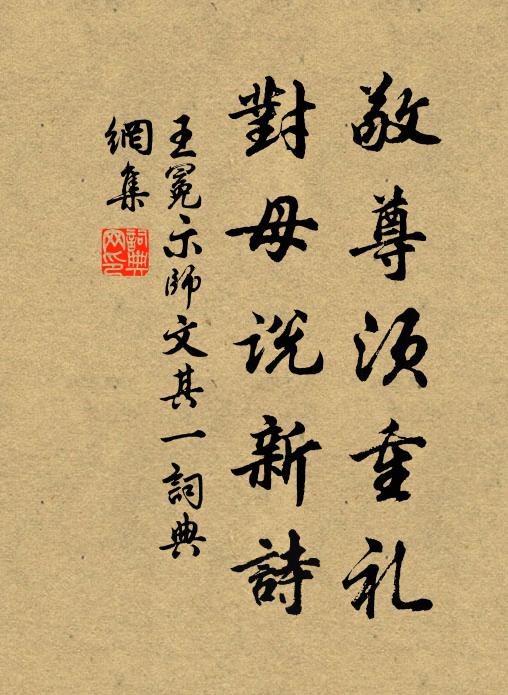 敬尊須重礼
對母說新詩
王冕示師文其一詞典
網集
詞典網印